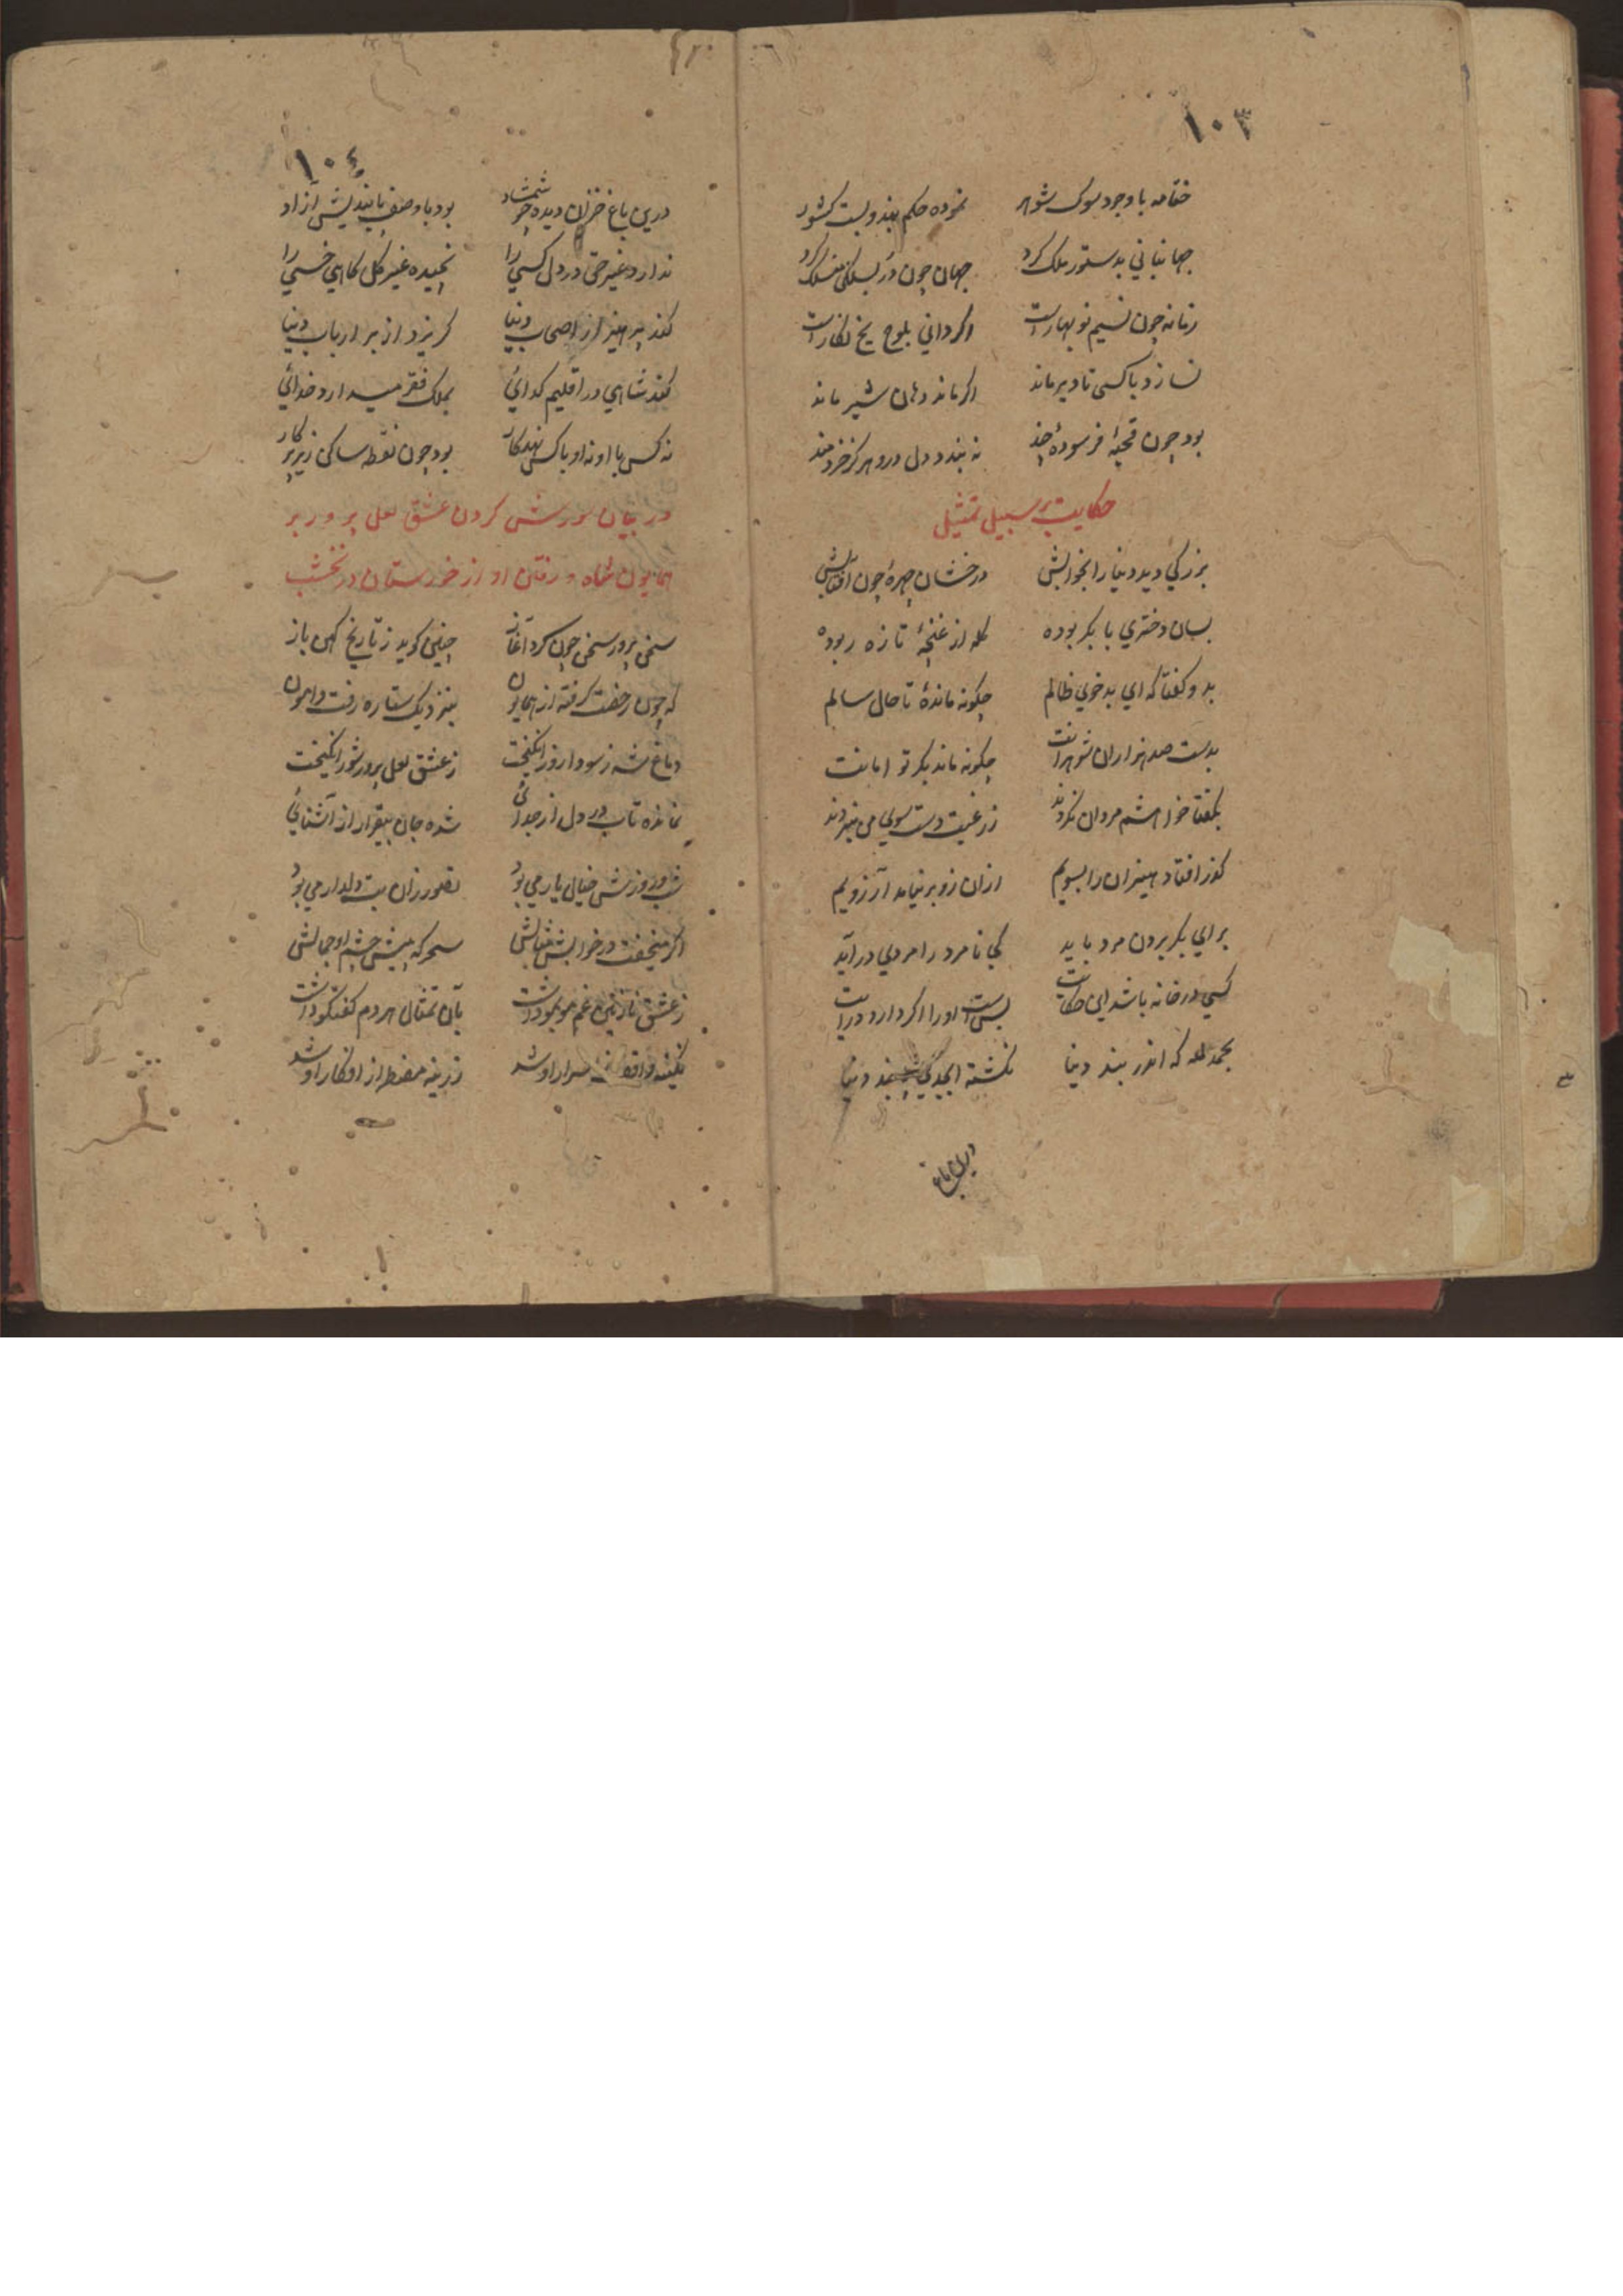 ۱۰۳
ختامه با وجود سوک شوهر نموده حکم بند و بست کشور
جهانبانی بدستور ملک کرد جهان چون در بسلکی منسلک کرد
زمانه چون نسیم نوبهار است اکر دانی بلوح یخ نکار است
نسازد با کسی تا دیر ماند اکر ماند دهان شیر ماند
بود چون قحبهٔ فرسودهٔ چند نه بندد دل درو هرکز خردمند
حکایت بر سبیل تمثیل
بزرکی دید دنیا را بخوابش درخشان چهرهٔ چون آفتابش
بسان دختری با بکر بوده کله از غنچهٔ تازه ربوده
بدو کفتا که ای بدخوی ظالم چکونه ماندهٔ تا حال سالم
بدست صد هزاران شوهرانت چکونه ماند بکر تو امانت
بکفتا خواهشم مردان نکردند ز رغبت دست سوی من نبردند
کذر افتاد هیزان را بسویم ازان رو بر نیامد آرزویم
برای بکر بردن مرد باید کی نامرد را مردی درآید
کسی در خانه باشد این حکایت بس است او را اکر دارد درایت
بحمد لله که اندر بند دنیا نکشته ابجدی پیوند دنیا
درین باغ
۱۰۴
درین باغ خزان دیده چو شمشاد بود با وصف پابندیش آزاد
ندارد غیر حق در دل کسی را نچیده غیر کل کاهی خسی را
کند پرهیز از اصحاب دنیا کریزد از بر ارباب دنیا
کند شاهی در اقلیم کدائی بملک فقر میدارد خدائی
نه کس با او نه او با کس نهد کار بود چون نقطه ساکن زیر پرکار
در بیان شورش کردن عشق لعل پرور بر
همایون شاه و رفتن او از خورستان در نخشب
سخن پرور سخن چون کرد آغاز چنین کوید ز تاریخ کهن باز
که چون رخصت کرفته از همایون بنزدیک ستاره رفت واهون
دماغ شه ز سودا روز انکیخت ز عشق لعل پرور شور انکیخت
نمانده تاب در دل از جدائی شده جان بیقرار از آشنائی
شب و روزش خیال یار می بود تصور زان بت دلدار می بود
اکر میخفت در خوابش مثالش سحرکه پیش چشم او جمالش
ز عشق نازنین غم مو بمو داشت بآن تمثال هر دم کفتکو داشت
نکینه واقف اسرار او شد زرینه مضطر از افکار او شد